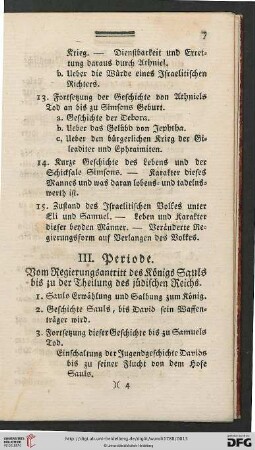 7
Krieg. — Dienstbarkeit und Erret-
tung daraus durch Athniel.
b. Ueber die Würde eines Israelitischen
Richters.
13. Fortsetzung der Geschichte von Athniels
Tod an bis zu Simsons Geburt.
a. Geschichte der Debora.
b. Ueber das Gelübd von Jephtha.
c. Ueber den bürgerlichen Krieg der Gi-
leaditer und Ephraimiten.
14. Kurze Geschichte des Lebens und der
Schicksale Simsons. — Karakter dieses
Mannes und was daran lobens- und tadelns-
werth ist.
15. Zustand des Israelitischen Volkes unter
Eli und Samuel. — Leben und Karakter
dieser beyden Männer. — Veränderte Re-
gierungsform auf Verlangen des Volkes.
III. Periode.
Vom Regierungsantritt des Königs Sauls
bis zu der Theilung des jüdischen Reichs.
1. Sauls Erwählung und Salbung zum König.
2. Geschichte Sauls, bis David sein Waffen-
träger wird.
3. Fortsetzung dieser Geschichte bis zu Samuels
Tod.
Einschaltung der Jugendgeschichte Davids
bis zu seiner Flucht von dem Hofe
Sauls.
)( 4
UNIVERSITÄTS-
BIBLIOTHEK
HEIDELBERG
© Universitätsbibliothek Heidelberg
gefördert durch die
DFG